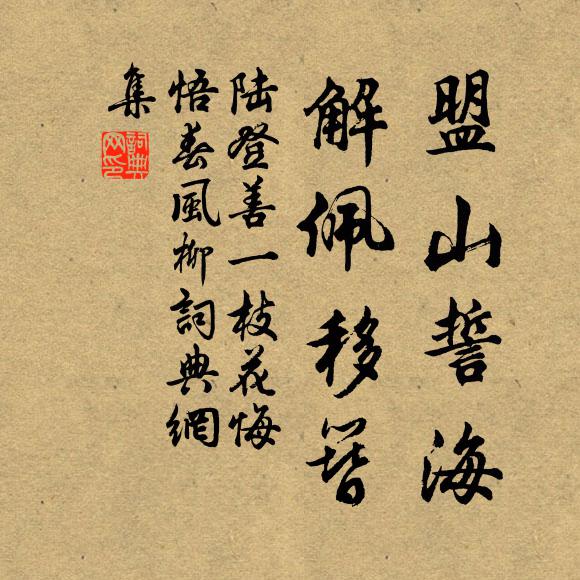 盟山誓海
解佩移簪
陸登善一枝花悔
悟春風柳詞典網
集
詞典
网印